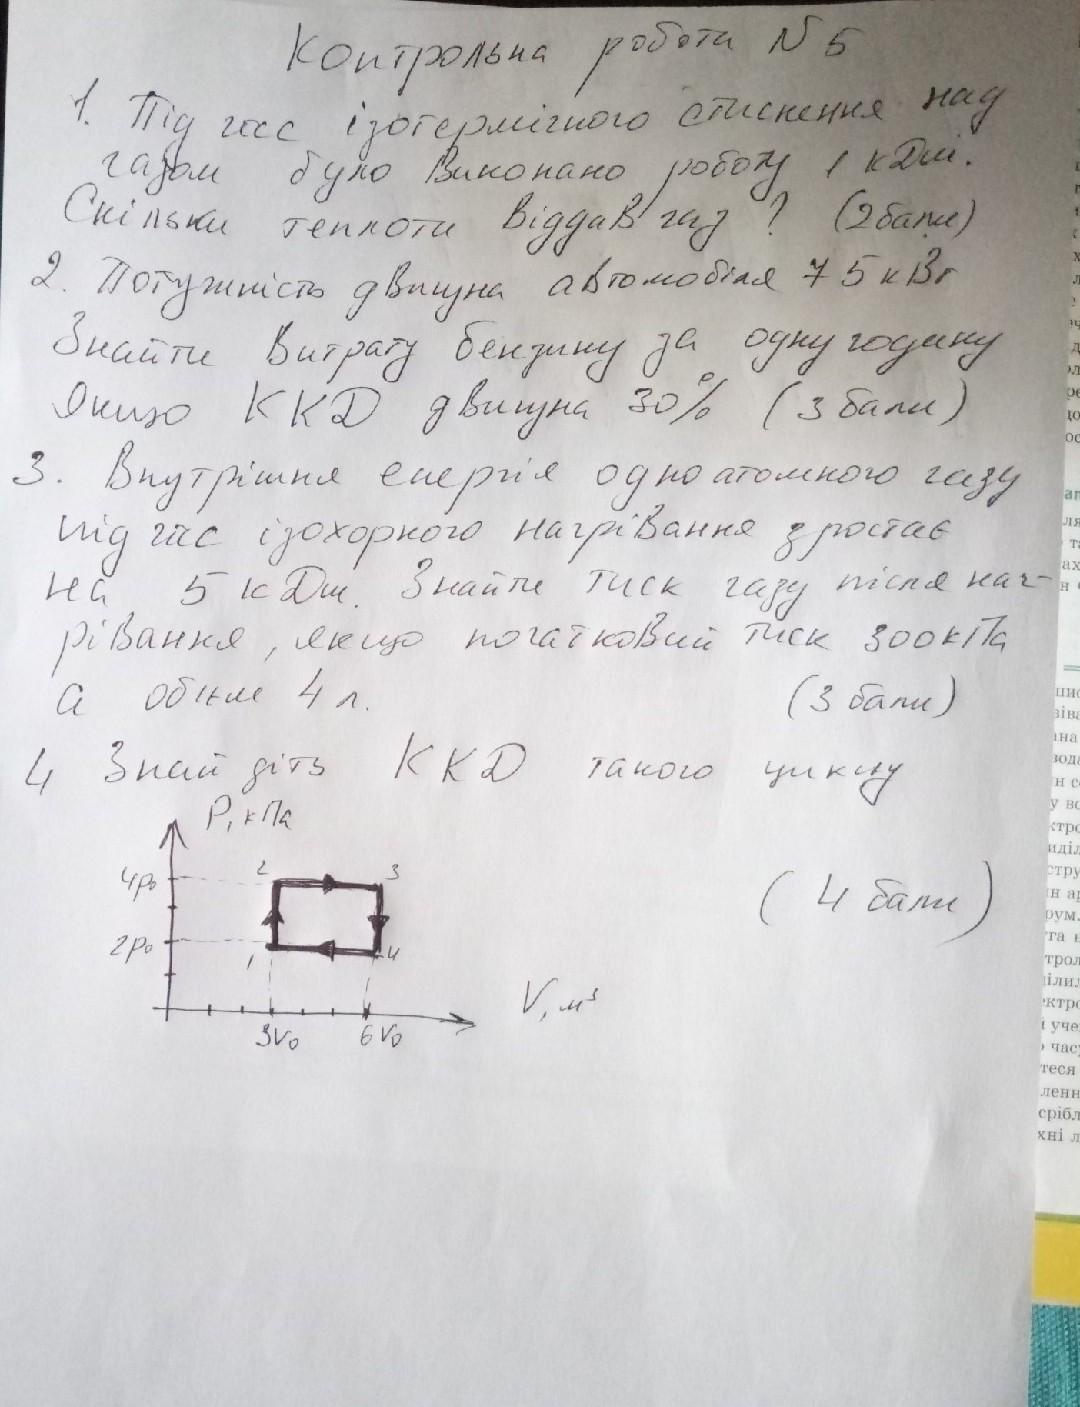 Контрольна робота N 5
1. Під час ізотермічного стиснення над
газом було виконано роботу 1 кДж.
Скільки теплоти віддав газ? (2 бали)
2. Потужність двигуна автомобіля 75 кВт
Знайти витрату бензину за одну годину
Якщо ККД двигуна 30% (3 бали)
3. Внутрішня енергія одноатомного газу
під час ізохорного нагрівання зростає
на 5 кДж. Знайти тиск газу після наг-
рівання, якщо початковий тиск 300 кПа
а об'єм 4 л. (3 бали)
4 Знайдіть ККД такого циклу
P, кПа
4p₀ 2 3
(4 бали)
2p₀ 1 4
V, м³
3V₀ 6V₀